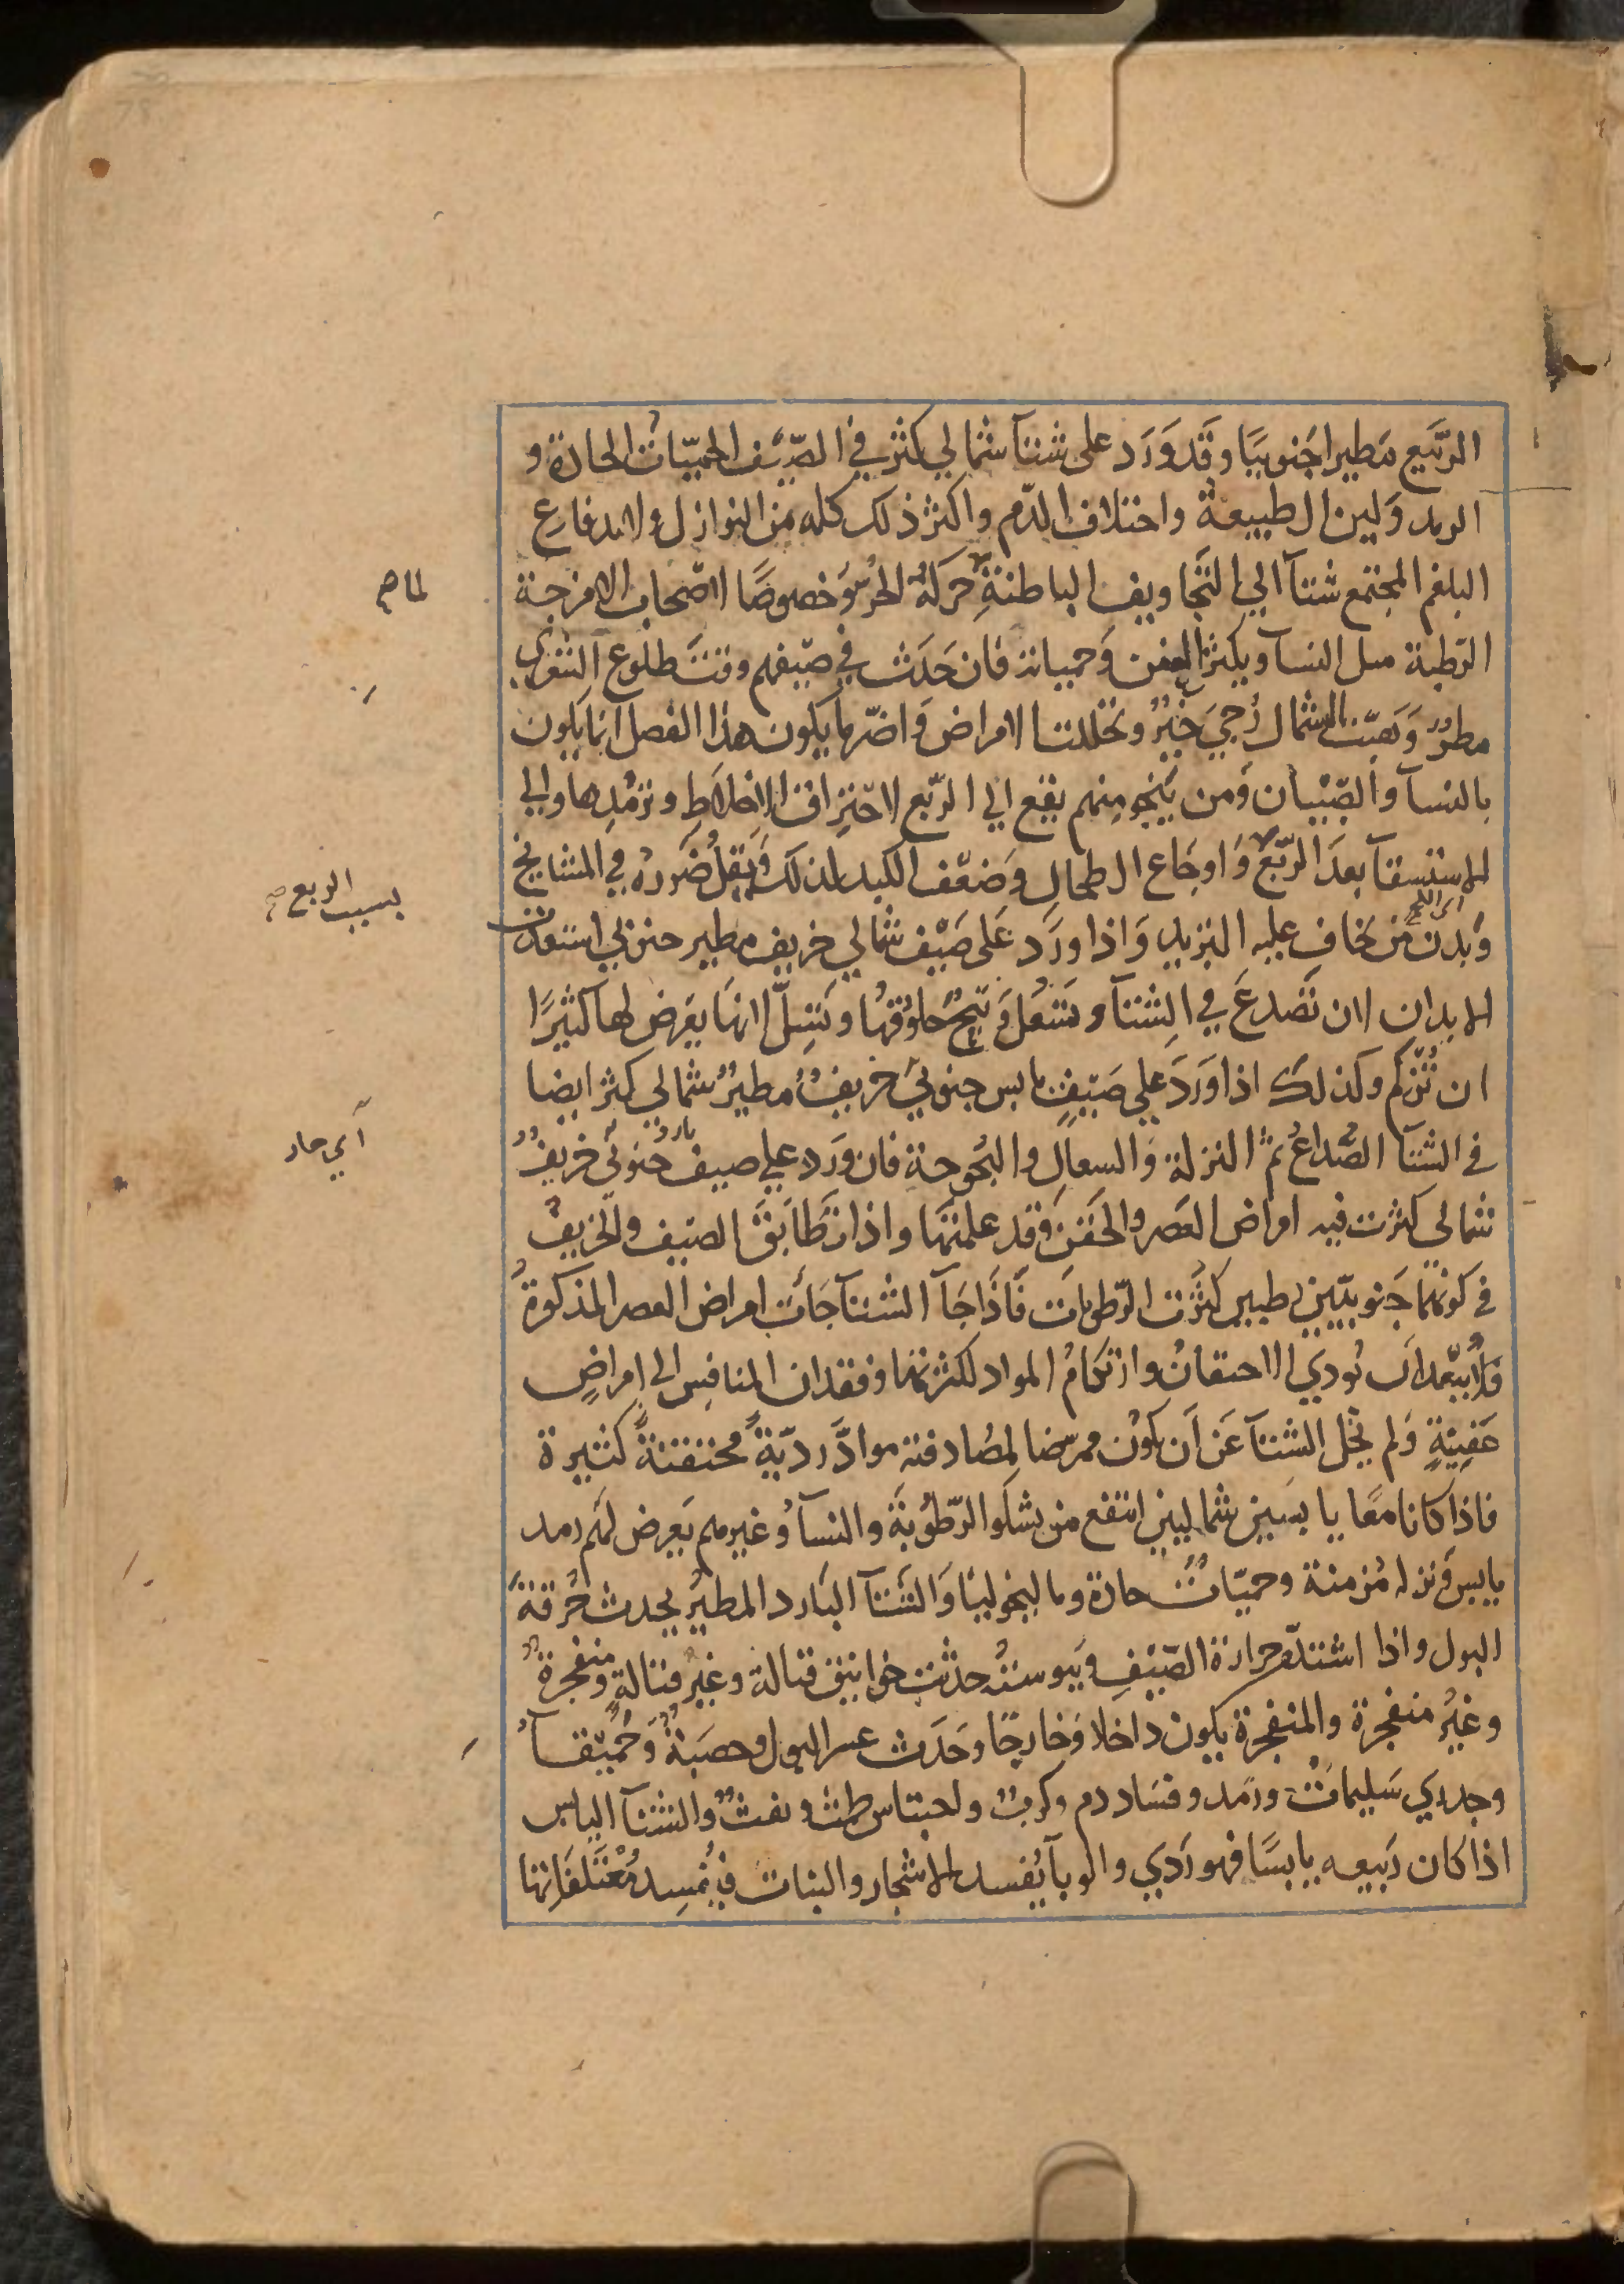 الرَّبيع مَطيرا جَنوبيًا وقَد وَرَد على شتآ شمالي كثر في الصّيف الحمّيّات الحادة و
الرمد وَلين الطبيعة واختلاف الدّم واكثر ذلك كله من النوازل ولاندفاع
البلغم المجتمع شتآ الي التجَاويف الباطنة حركهُ الحرّ وَخصوصًا لاصحاب الامزجة
لما صح
الرّطبة مىل النسآ ويكثر العفن وَحمياته فان حَدَث في صَيفهم وقتَ طلوع الشعري
مطرٌ وَهبّت الشمال رُجيَ خيرٌ وتحللت الامراض وَاضرّ ما يكون هذا الفصل انما يكون
بالنسآ والصِّبْيان وَمن يَنجُو منهم يقع الي الرّبع لاحتراق الاخلاطِ وترمُّدِها والي
الاستسقآ بعدَ الرّبع وَاوجَاع الطحالِ وَضعْف الكبد لذلك وَيقلُّ ضَررهُ في المشايخ
بسبب الربع صح
وَبدن مَن يخاف عليه التبريد وَاذا ورَد عَلى صَيْف شمالي خريف مطير جنوبي استعدّت
الابدان لان تَصْدعَ في الشتآ وتسْعُلَ وَتبحَّ حلوقها وتسِلّ لانهَا يعَرض لها كثيرًا
ان تُزكم وكذلك اذا وَرَدَ علي صَيفٍ يابس جنوبيّ خريفٌ مطيرٌ شمالي كثر ايضا
في الشتآ الصُّداعُ ثمّ النزلة وَالسعالِ والبُحوحة فان ورَد علي صيف جنوبي خريفٌ
اي حار
شمالي كثرت فيه امراض العَصر والحَقن وَقد علمتَها واذا تطَابَقَ الصيف والخريفُ
في كونهما جَنوبيّين رطبين كثُرت الرّطوبات فَاذَا جَآ الشتآ جَاءت امراض العصر المذكورةُ
فلا يبعُد ان يُودي الاحتقانُ وارتكامُ المواد لكثرتها وفقدان المنافس الي امراضٍ
عَفِنِيةٍ وَلم يخل الشتآ عَن اَن يكون ممرضا لمصادفته موادَّ رديّةً محتقنةً كثيرة
فاذا كانا معًا يابسَين شماليين انتفع من يشكو الرّطوُبةَ والنسآ وغيرهم يَعرض لهم رمد
يابس وَنزله مُزمنة وحميّاتٌ حادة وماليخوليَا وَالشتآ البَارد المطير يحدث حُرقةَ
البول واذا اشتدّت حرارة الصّيْفِ وَيبوستهُ حدثت خوانيق قتالة وغيرُ قتالةٍ ومنفجرةٌ
وغيرُ منفجرة والمنفجرة يكون داخلا وَخارجًا وحَدَث عسر البول وحصَبةٌ وَحُمَيْقآ
وجدري سَليماتٌ ورَمَد وفسَاد دم وكربٌ واحتباس طمث ونفثٌ والشتآ اليابس
اذا كان رَبيعه يابسًا فهو رَدي والوبآ يُفسد الاشجار والنبات فيُفسِد مُعْتَلفَاتها